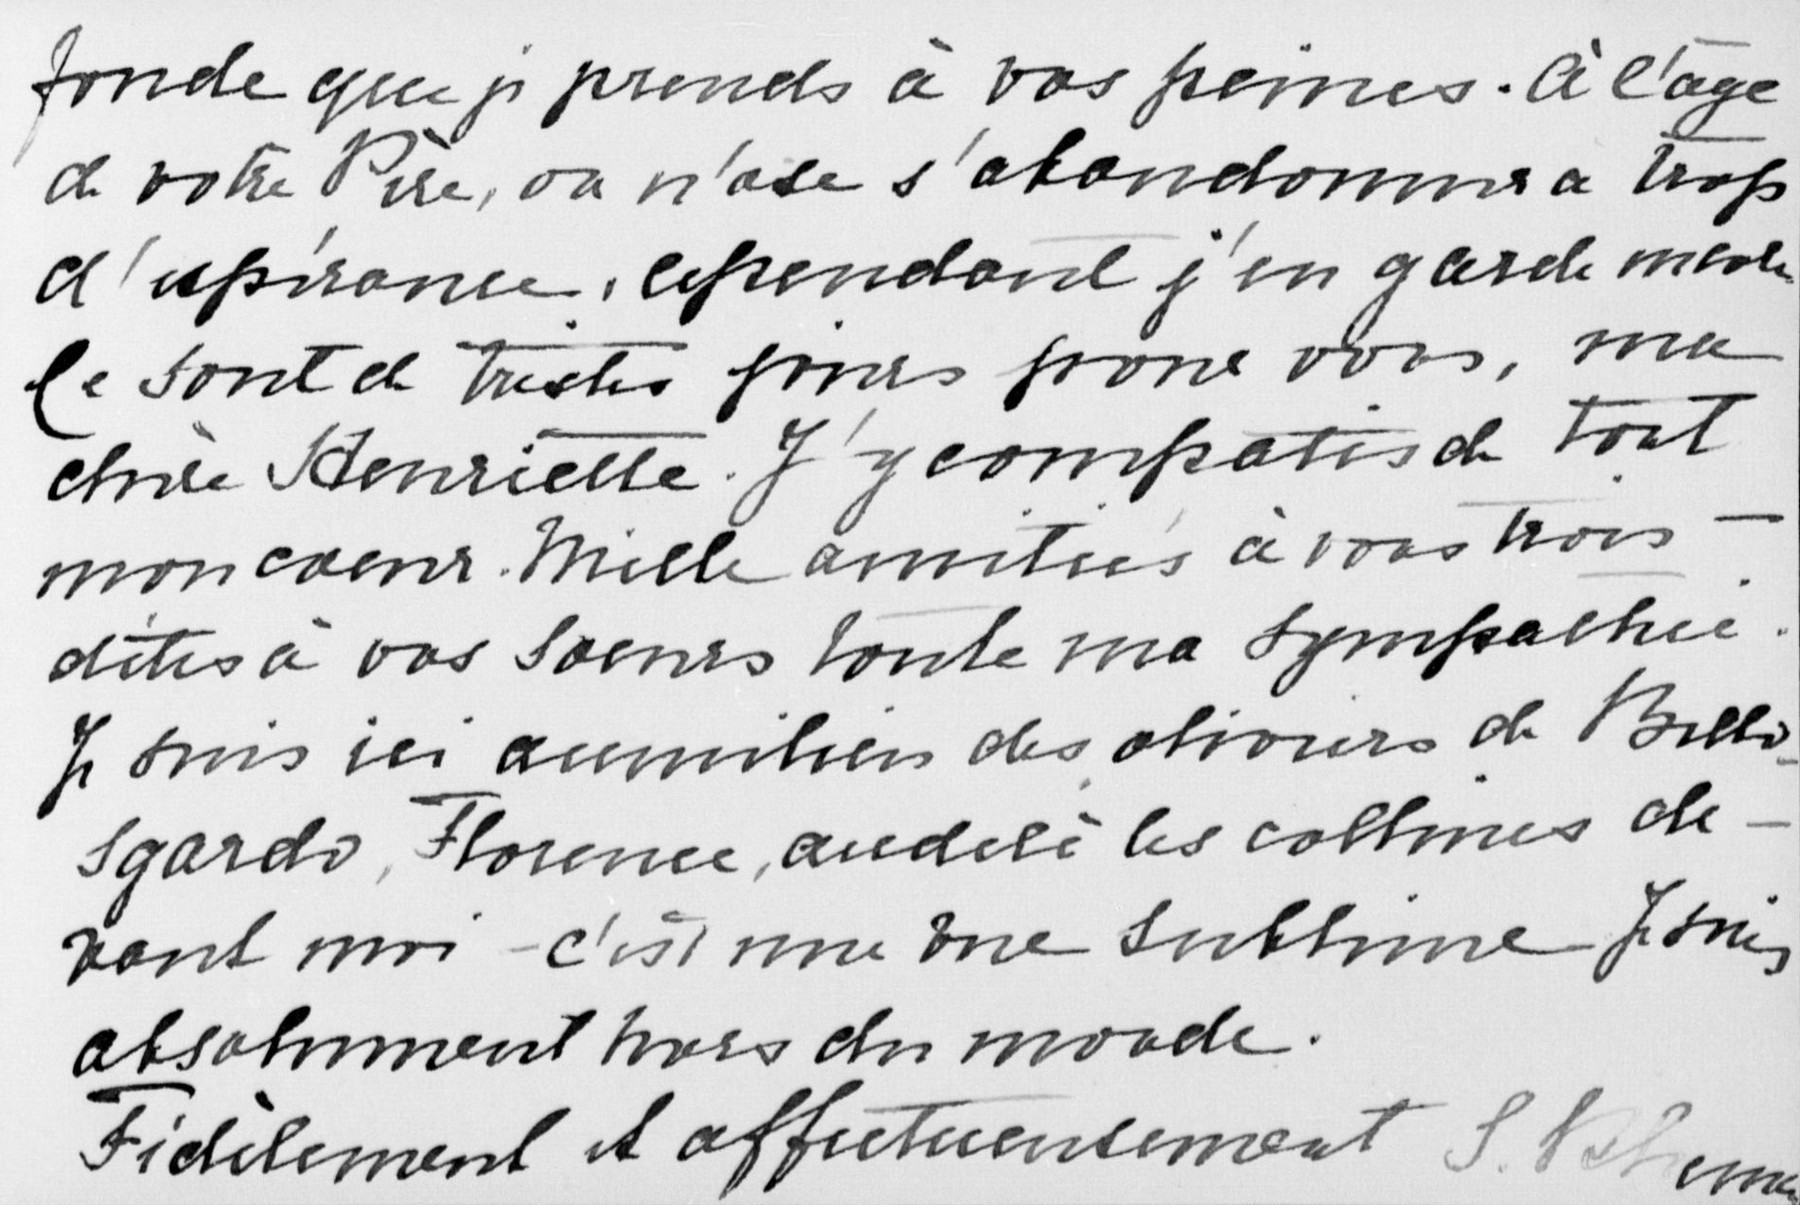 fonde que je prends à vos peines. À l'âge
de votre Père, on n'ose s'abandonner a trop
d'espérance, cependant j'en garde encore
Ce sont de tristes jours pour vous, ma
chère Henriette. J'y compatis de tout
mon coeur. Mille amitiés à vous trois —
dites à vos soeurs toute ma sympathie.
Je suis ici au milieu des oliviers de Bello-
sgardo, Florence, au delà les collines de-
vant moi - c'est une vue sublime Je suis
absolument hors du monde.
Fidèlement et affectueusement S.